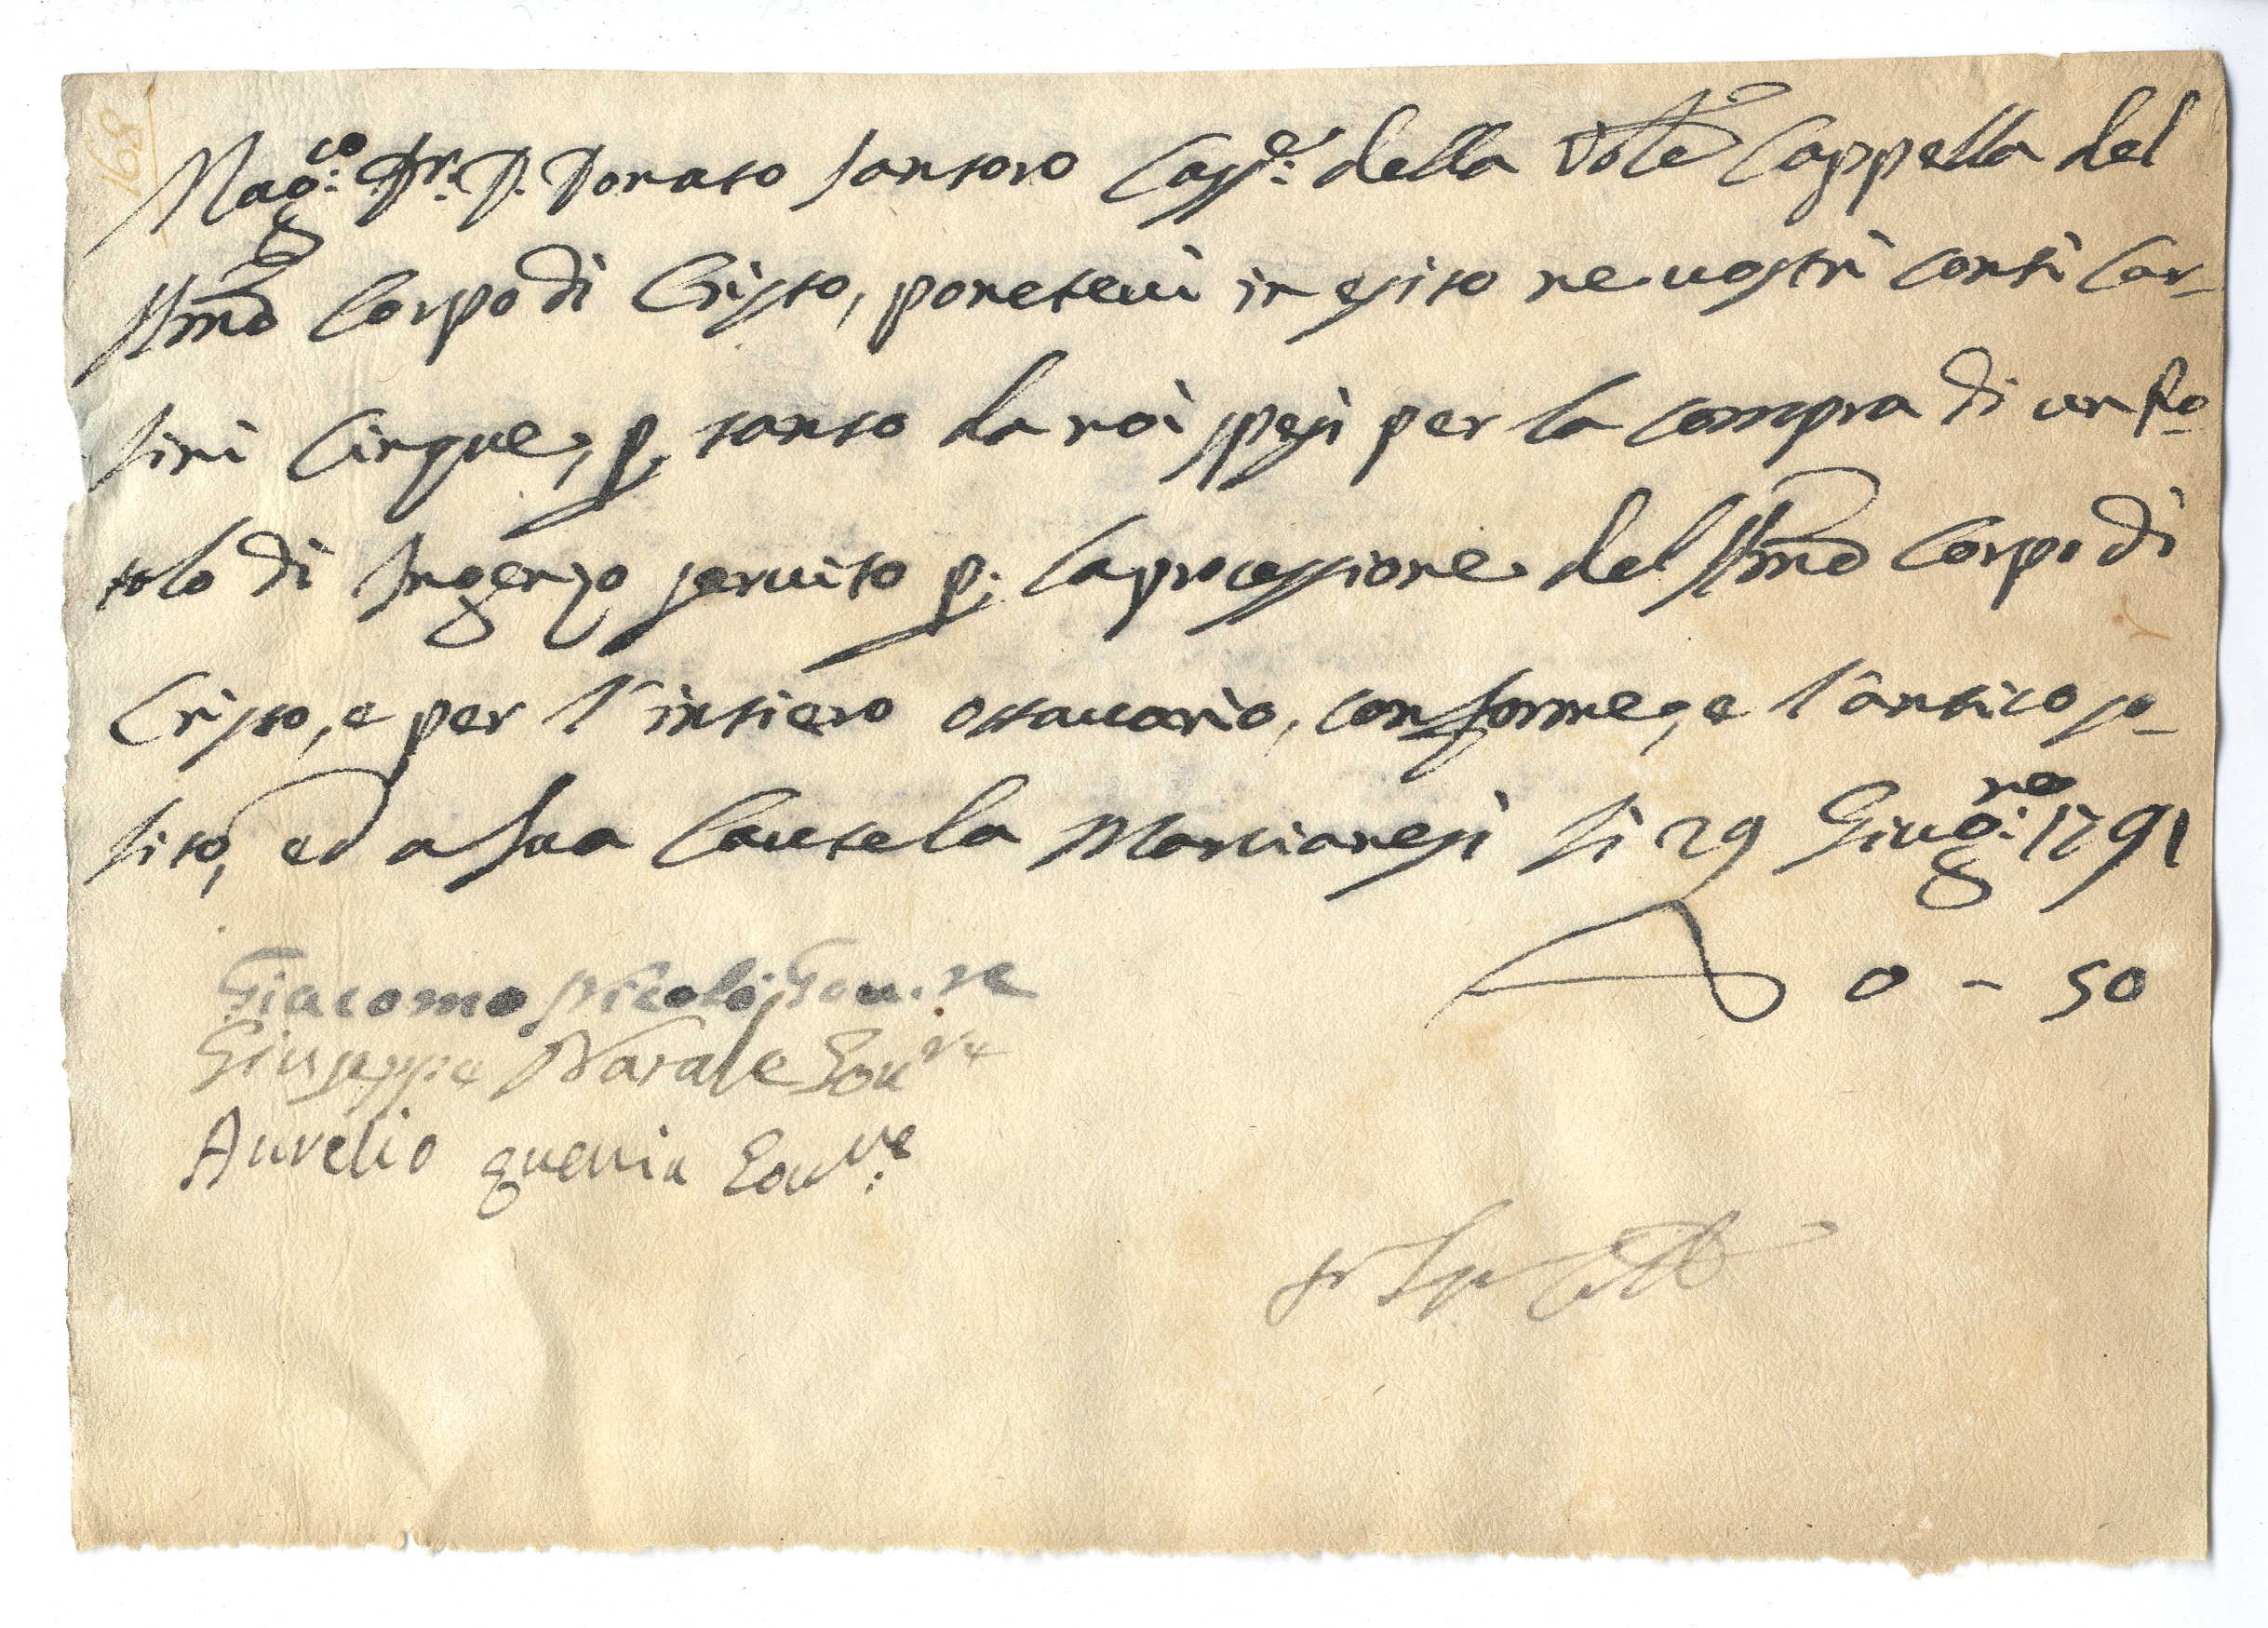 168
Mag.co Dr. D. Donato Santoro Cass.e della Vble Cappella del
SSmo Corpo di Cristo, ponetevi in esito ne vostri conti Car-
lini Cinque, p. tanto da voi spesi per la compra di un Ro-
tolo di Ingenzo servito p. la processione del SSmo Corpo di
Cristo, e per l'intiero ottavario, conforme, e l'antico so-
lito, ed a sua Cautela Marcianesi li 29 Giug.no 1791
0 - 50
Giacomo Nicolò Gov.re
Giuseppe Natale Gov.re
Aurelio guerria Gov.re